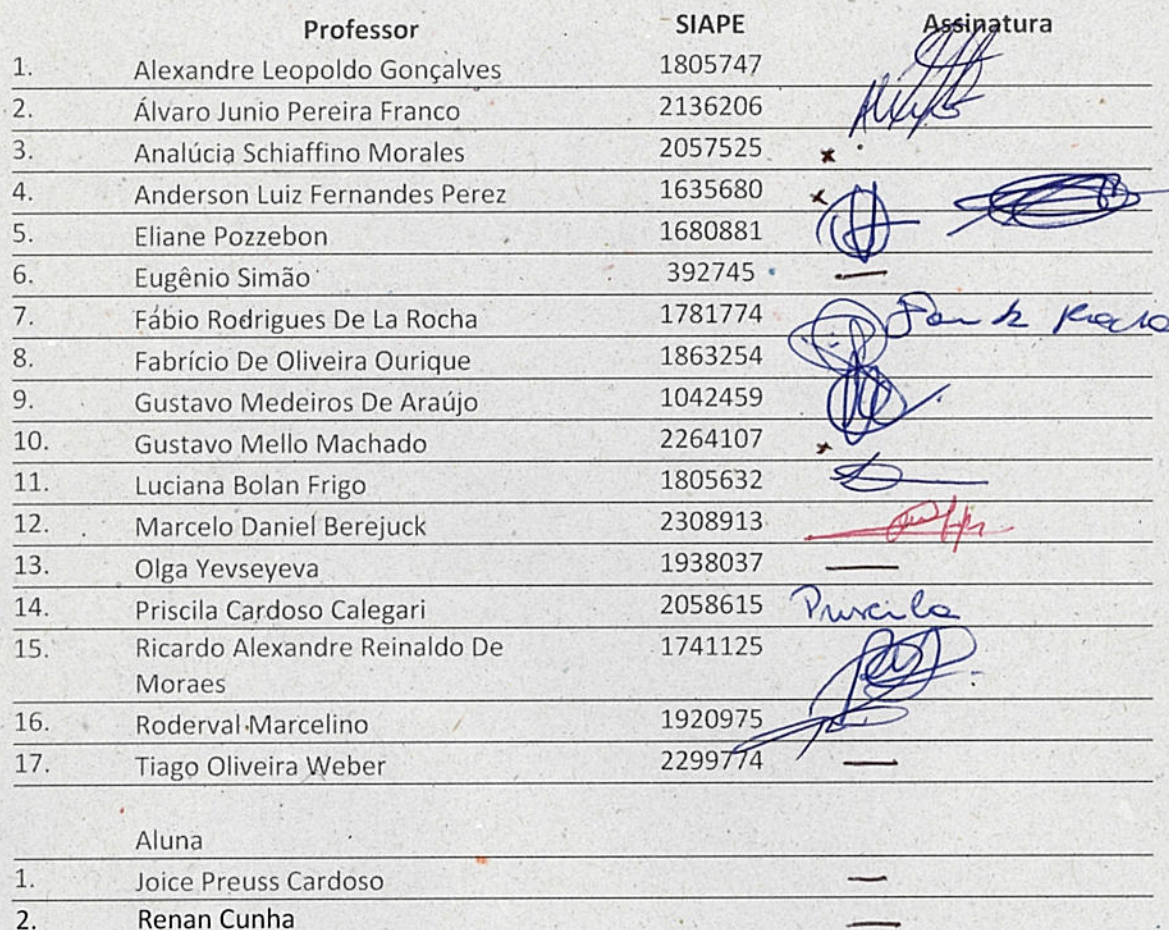 Professor SIAPE Assinatura
1. Alexandre Leopoldo Gonçalves 1805747
2. Álvaro Junio Pereira Franco 2136206
3. Analúcia Schiaffino Morales 2057525 x
4. Anderson Luiz Fernandes Perez 1635680 x
5. Eliane Pozzebon 1680881
6. Eugênio Simão 392745 —
7. Fábio Rodrigues De La Rocha 1781774
8. Fabrício De Oliveira Ourique 1863254
9. Gustavo Medeiros De Araújo 1042459
10. Gustavo Mello Machado 2264107 x
11. Luciana Bolan Frigo 1805632
12. Marcelo Daniel Berejuck 2308913
13. Olga Yevseyeva 1938037 —
14. Priscila Cardoso Calegari 2058615 Priscila
15. Ricardo Alexandre Reinaldo De 1741125
Moraes
16. Roderval Marcelino 1920975
17. Tiago Oliveira Weber 2299774 —
Aluna
1. Joice Preuss Cardoso —
2. Renan Cunha —